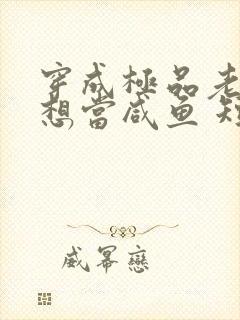 穿成極品老
想當咸鱼
威幂戀